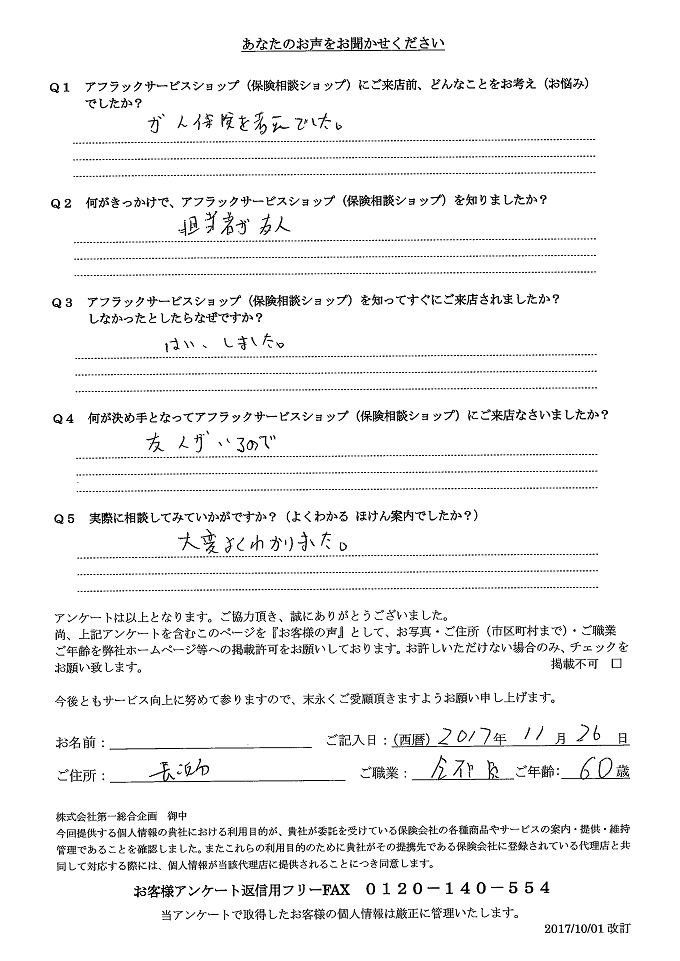 あなたのお声をお聞かせください
Q1 アフラックサービスショップ（保険相談ショップ）にご来店前、どんなことをお考え（お悩み）
でしたか？
が人保険を考えでした。
Q2 何がきっかけで、アフラックサービスショップ（保険相談ショップ）を知りましたか？
担当者が友人
Q3 アフラックサービスショップ（保険相談ショップ）を知ってすぐにご来店されましたか？
しなかったとしたらなぜですか？
はい、しました。
Q4 何が決め手となってアフラックサービスショップ（保険相談ショップ）にご来店なさいましたか？
友人がいるので
Q5 実際に相談してみていかがですか？（よくわかる ほけん案内でしたか？）
大変よくわかりました。
アンケートは以上となります。ご協力頂き、誠にありがとうございました。
尚、上記アンケートを含むこのページを『お客様の声』として、お写真・ご住所（市区町村まで）・ご職業
ご年齢を弊社ホームページ等への掲載許可をお願いしております。お許しいただけない場合のみ、チェックを
お願い致します。 掲載不可 □
今後ともサービス向上に努めて参りますので、末永くご愛顧頂きますようお願い申し上げます。
お名前： ご記入日：（西暦）2017年 11月 26日
ご住所： 長浜市 ご職業： 会社員 ご年齢： 60歳
株式会社第一総合企画 御中
今回提供する個人情報の貴社における利用目的が、貴社が委託を受けている保険会社の各種商品やサービスの案内・提供・維持
管理であることを確認しました。またこれらの利用目的のために貴社がその提携先である保険会社に登録されている代理店と共
同して対応する際には、個人情報が当該代理店に提供されることにつき同意します。
お客様アンケート返信用フリーFAX 0120－140－554
当アンケートで取得したお客様の個人情報は厳正に管理いたします。
2017/10/01 改訂